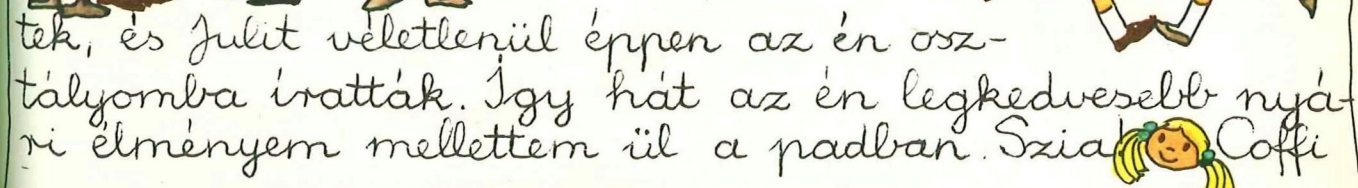 tek, és Julit véletlenül éppen az én osz-
tályomba íratták. Így hát az én legkedvesebb nyá-
ri élményem mellettem ül a padban. Szia! Coffi